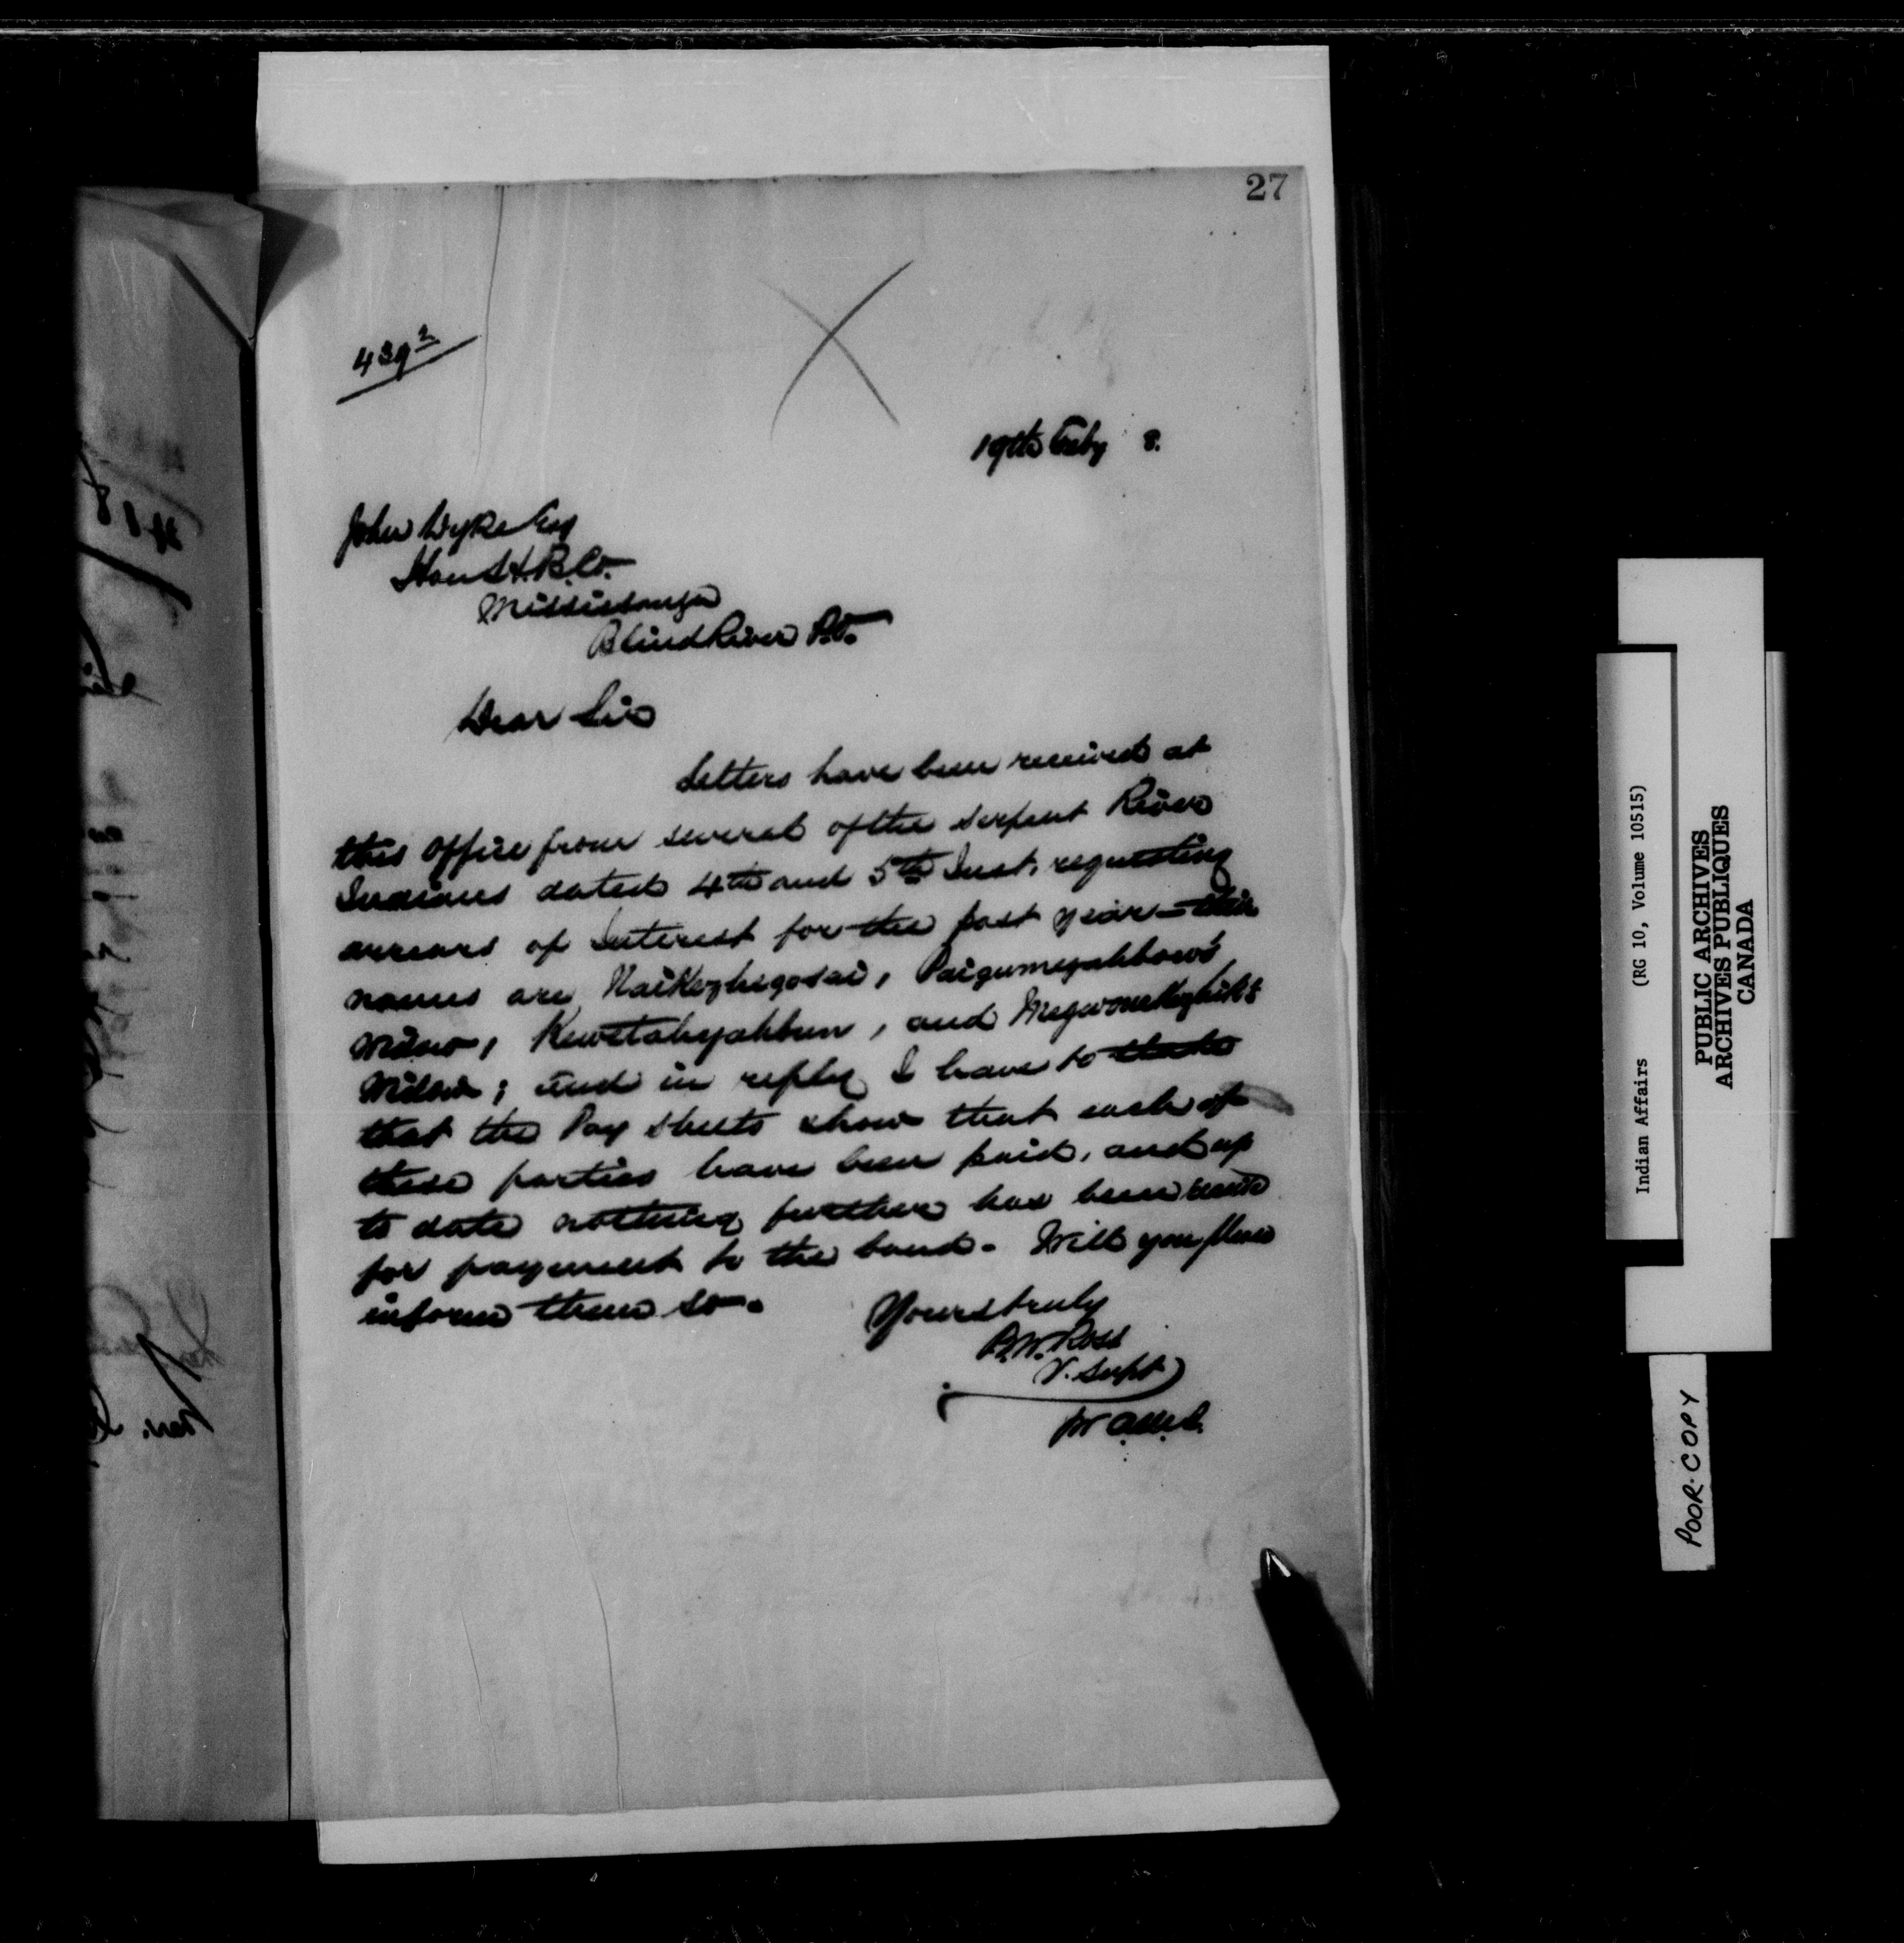 27
439²
19th Feby 8.
John Dyke Esq
Hon. H. B. Co.
Mississauga
Blind River P.O.
Dear Sir
Letters have been received at
this office from several of the Serpent River
Indians dated 4th and 5th Inst. requesting
arrears of Interest for the past year - their
names are
and
; and in reply I have to state
that the Pay Sheets show that each of
these parties have been paid, and up
to date nothing further has been
for payment to the band. Will you please
inform them so.
Yours truly
B.W. Ross
V. Supt
Indian Affairs (RG 10, Volume 10515)
PUBLIC ARCHIVES
ARCHIVES PUBLIQUES
CANADA
POOR COPY